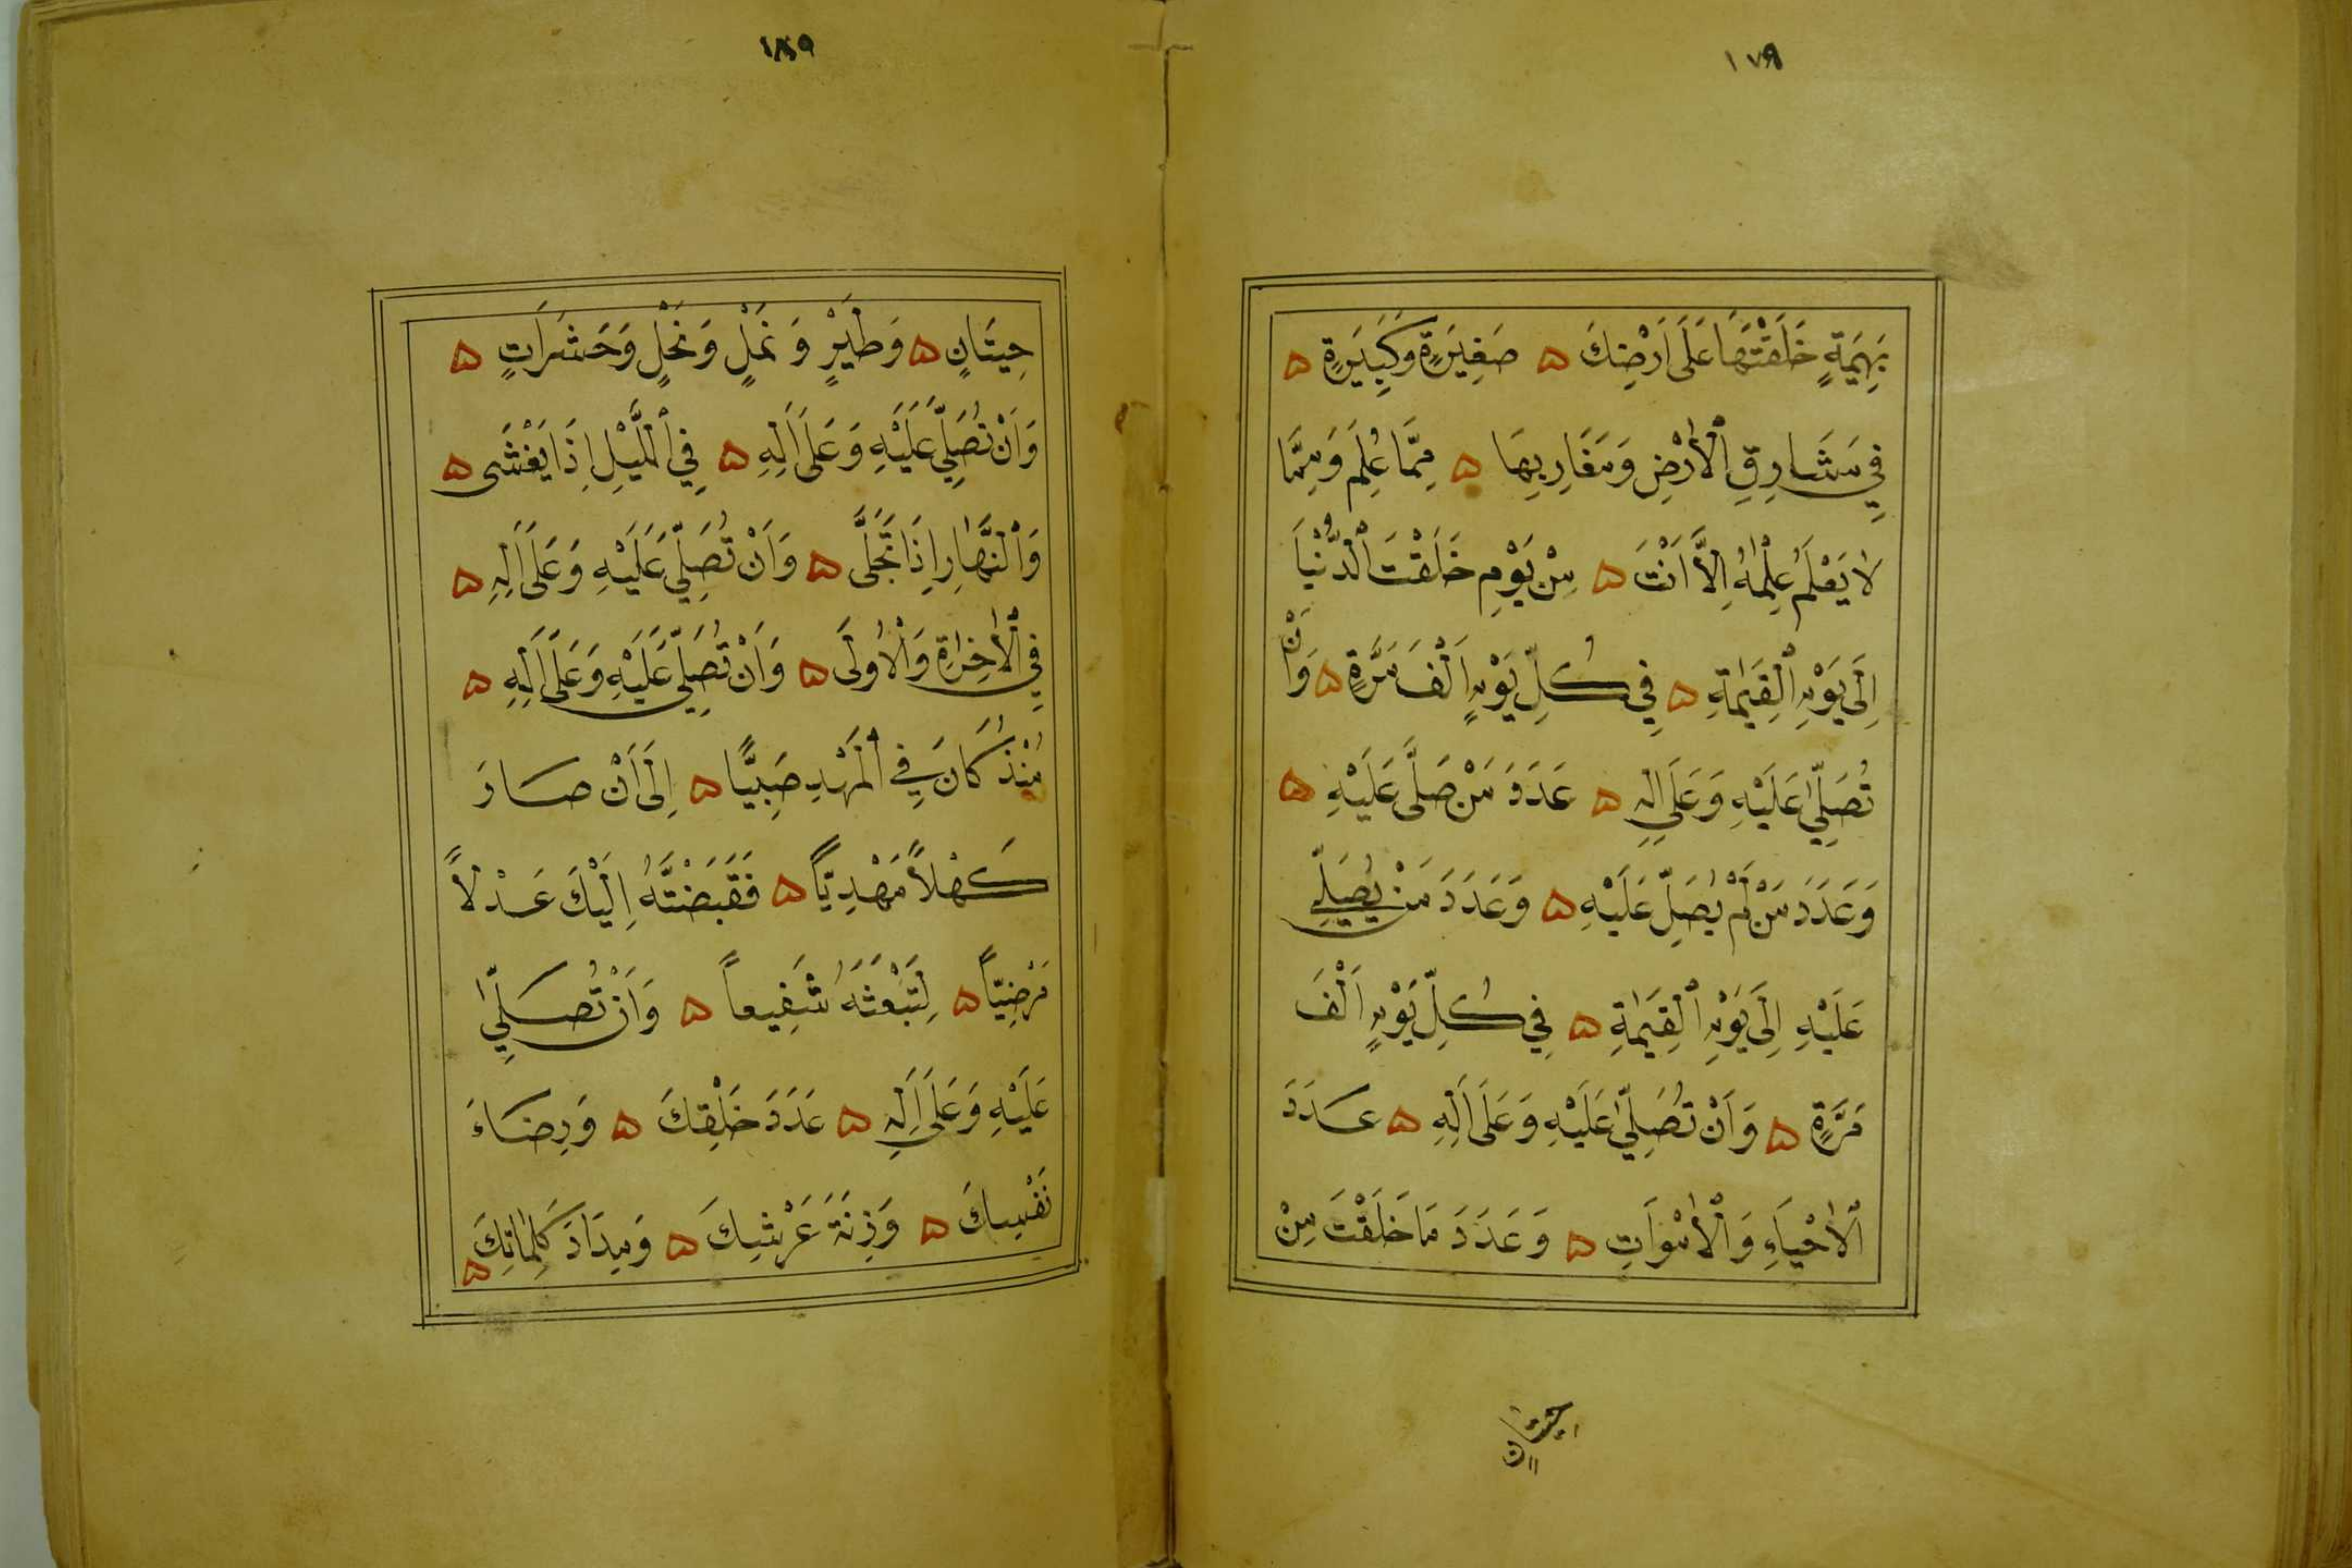 ١٧٩
بَهِيمَةٍ خَلَقْتَهَا عَلَى اَرْضِكَ ۵ صَغِيرَةٍ وَكَبِيرَةٍ ۵
فِي مَشَارِقِ ٱلْاَرْضِ وَمَغَارِبِهَا ۵ مِمَّا عُلِمَ وَمِمَّا
لَا يَعْلَمُ عِلْمَهُ اِلَّا اَنْتَ ۵ مِنْ يَوْمِ خَلَقْتَ ٱلدُّنْيَا
اِلَى يَوْمِ ٱلْقِيٰمَةِ ۵ فِي كُلِّ يَوْمٍ اَلْفَ مَرَّةٍ ۵ وَاَنْ
تُصَلِّيَ عَلَيْهِ وَعَلَى اٰلِهِ ۵ عَدَدَ مَنْ صَلَّى عَلَيْهِ ۵
وَعَدَدَ مَنْ لَمْ يُصَلِّ عَلَيْهِ ۵ وَعَدَدَ مَنْ يُصَلِّي
عَلَيْهِ اِلَى يَوْمِ ٱلْقِيٰمَةِ ۵ فِي كُلِّ يَوْمٍ اَلْفَ
مَرَّةٍ ۵ وَاَنْ تُصَلِّيَ عَلَيْهِ وَعَلَى اٰلِهِ ۵ عَدَدَ
ٱلْاَحْيَاءِ وَٱلْاَمْوَاتِ ۵ وَعَدَدَ مَا خَلَقْتَ مِنْ
حِيتَانٍ
حِيتَانٍ ۵ وَطَيْرٍ وَنَمْلٍ وَنَحْلٍ وَحَشَرَاتٍ ۵
وَاَنْ تُصَلِّيَ عَلَيْهِ وَعَلَى اٰلِهِ ۵ فِي ٱللَّيْلِ اِذَا يَغْشَى ۵
وَٱلنَّهَارِ اِذَا تَجَلَّى ۵ وَاَنْ تُصَلِّيَ عَلَيْهِ وَعَلَى اٰلِهِ ۵
فِي ٱلْاٰخِرَةِ وَٱلْاُولَى ۵ وَاَنْ تُصَلِّيَ عَلَيْهِ وَعَلَى اٰلِهِ ۵
مُنْذُ كَانَ فِي ٱلْمَهْدِ صَبِيًّا ۵ اِلَى اَنْ صَارَ
كَهْلًا مَهْدِيًّا ۵ فَقَبَضْتَهُ اِلَيْكَ عَدْلًا
مَرْضِيًّا ۵ لِتَبْعَثَهُ شَفِيعاً ۵ وَاَنْ تُصَلِّيَ
عَلَيْهِ وَعَلَى اٰلِهِ ۵ عَدَدَ خَلْقِكَ ۵ وَرِضَاءَ
نَفْسِكَ ۵ وَزِنَةَ عَرْشِكَ ۵ وَمِدَادَ كَلِمَاتِكَ ۵